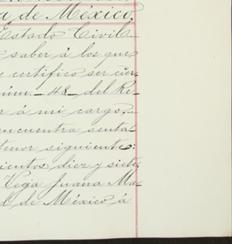 a de México,
Estado Civil
saber á los que
certifico ser cier-
núm. 48 del Re-
r á mi cargo,
encuentra senta-
tenor siguiente:
cientos diez y siete
Vega Juana Ma-
d de México á